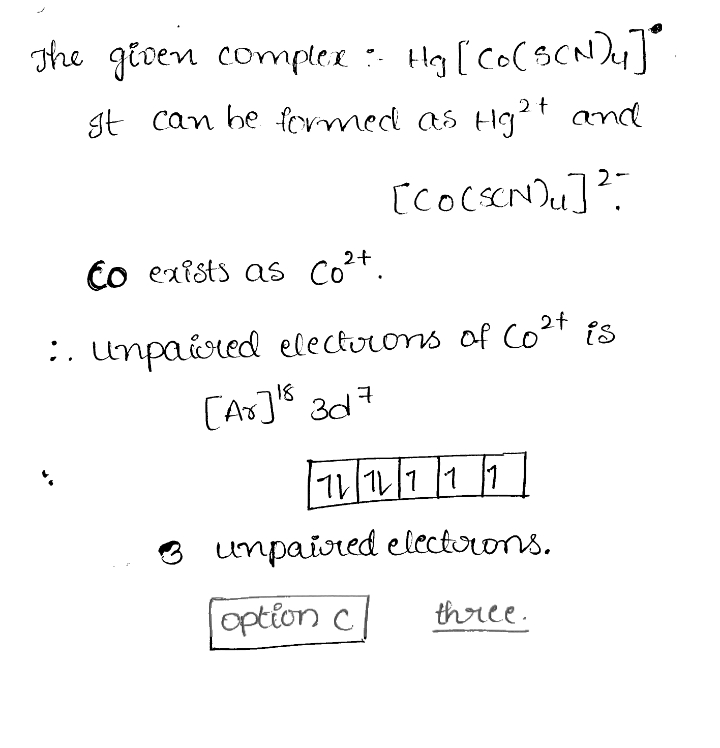 The given complex :- Hg[Co(SCN)4]
It can be formed as Hg2+ and
[Co(SCN)4]2-.
Co exists as Co2+.
∴ unpaired electrons of Co2+ is
[Ar]18 3d7
1L 1L 1 1 1
3 unpaired electrons.
option c three.